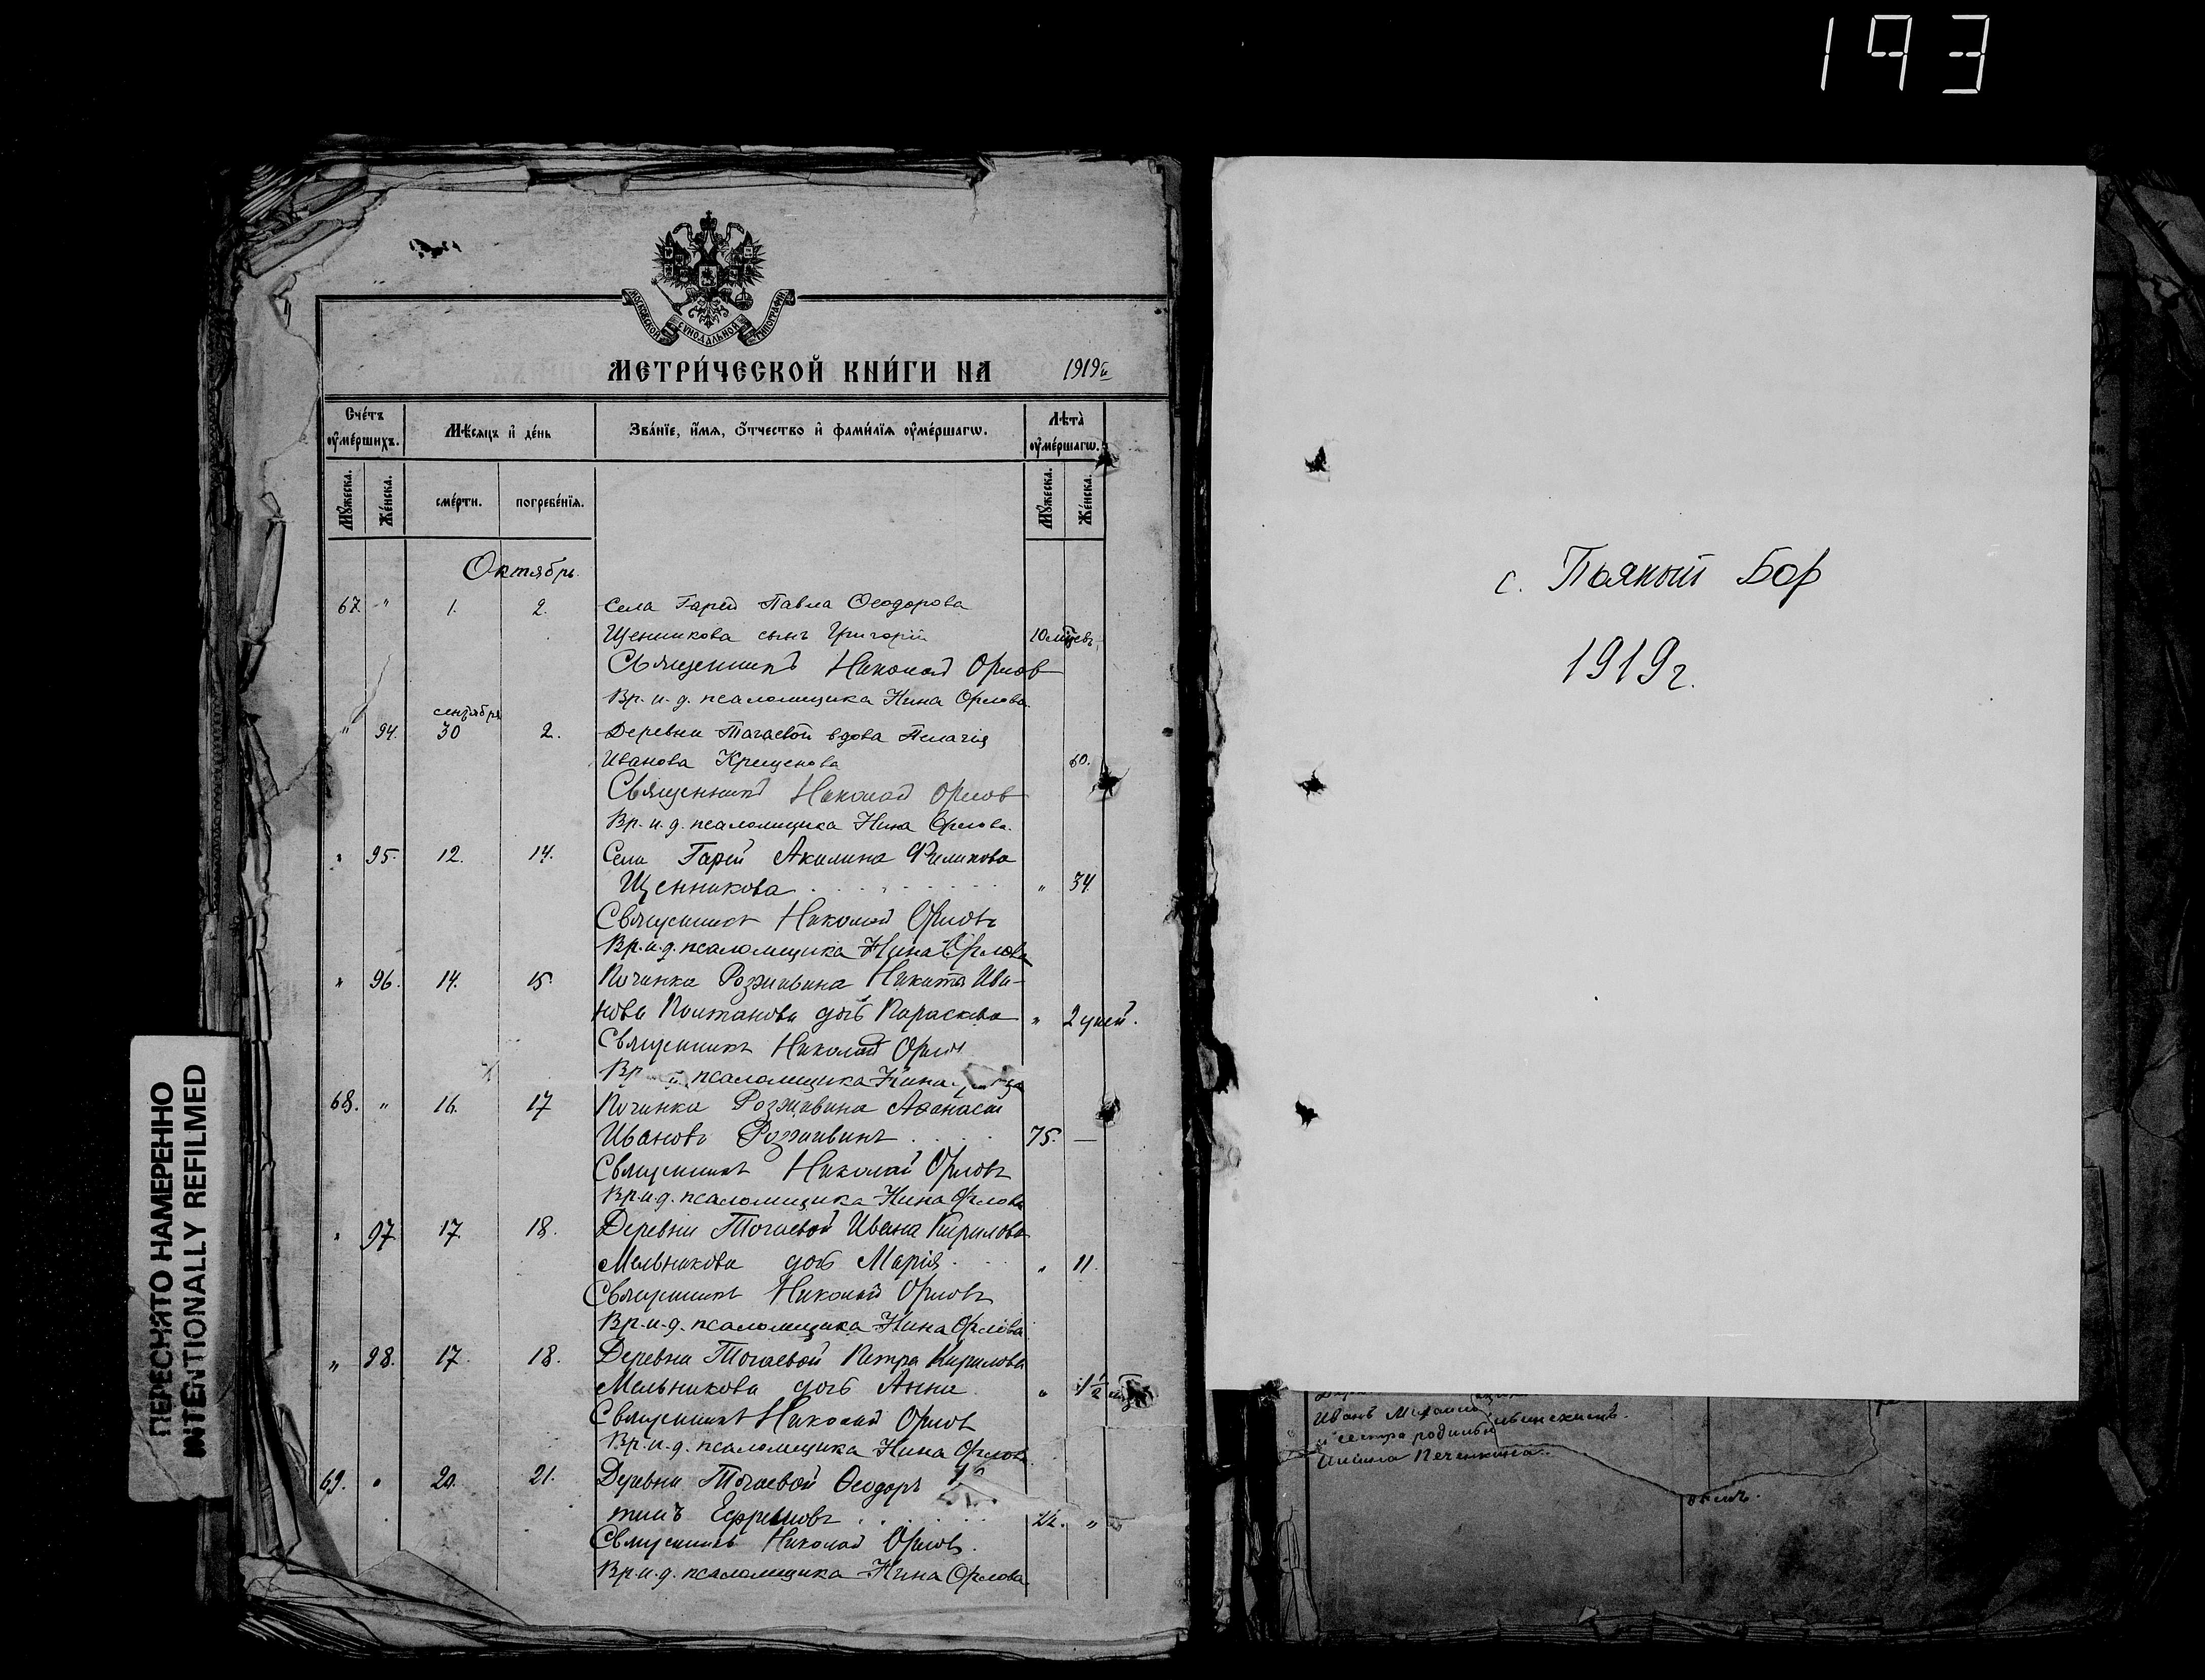 193
МОСКОВСКОЙ СѴНОДАЛЬНОЙ ТИПОГРАФІИ
МЕТРИ́ЧЕСКОЙ КНИ́ГИ НА 1919й
Сче́тъ оу҆ме́ршихъ.
Мѣ́сяцъ и҆ де́нь
Зва́нїе, и҆́мѧ, ѻ҆́тчество и҆ фами́лїѧ оу҆ме́ршагѡ.
Лѣ́та оу҆ме́ршагѡ.
Мꙋ́жеска.
Же́нска.
сме́рти.
погребе́нїѧ.
Мꙋ́жеска.
Же́нска.
Октябрь.
67 " 1. 2. Села Гарей Павла Ѳеодорова
Щенникова сынъ Григорій 10 мѣсяцевъ
Священникъ Николай Орлов
Вр. и. д. псаломщика Нина Орлова.
сентября
" 94. 30 2. Деревни Тагаевой вдова Пелагія
Иванова Крещенова 60.
Священникъ Николай Орлов
Вр. и. д. псаломщика Нина Орлова.
" 95. 12. 14. Села Гарей Акилина Филипова
Щенникова " 34
Священникъ Николай Орловъ
Вр. и. д. псаломщика Нина Орлова
" 96. 14. 15. Починка Розживина Никита Ива-
нова дочь Параскева " 2 дней.
Священникъ Николай Орлов
Вр. псаломщика Нина
68. " 16. 17 Починка Розживина Аѳанасій
Ивановъ Розживинъ 75. —
Священникъ Николай Орловъ
Вр. и. д. псаломщика Нина Орлова
" 97 17. 18. Деревни Тогаевой Ивана Кирилова
Мельникова дочь Марія " 11.
Священникъ Николай Орловъ
Вр. и. д. псаломщика Нина Орлова
" 98. 17. 18. Деревни Тогаевой Петра Кирилова
Мельникова дочь Анна " 1½
Священникъ Николай Орлов
Вр. и. д. псаломщика Нина Орлова
69. " 20. 21. Деревни Тогаевой Ѳеодоръ
Ефремовъ 22. "
Священникъ Николай Орловъ.
Вр. и. д. псаломщика Нина Орлова
ПЕРЕСНЯТО НАМЕРЕННО
INTENTIONALLY REFILMED
с. Пьяный Бор
1919 г.
Иванъ
и сестра родильн
Печенкина.